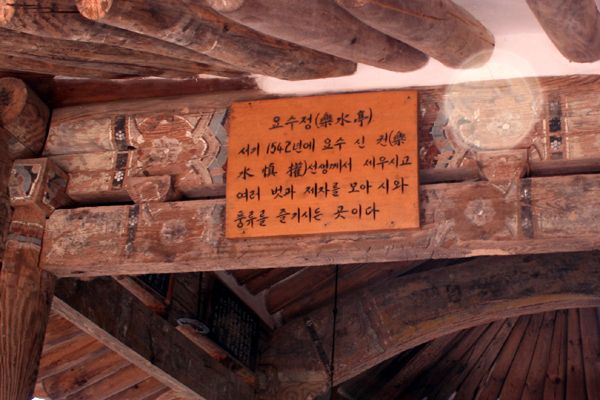 요수정(樂水亭)
서기 1542년에 요수 신 권(樂
水 愼 權)선생께서 세우시고
여러 벗과 제자를 모아 시와
풍류를 즐기시든 곳이다